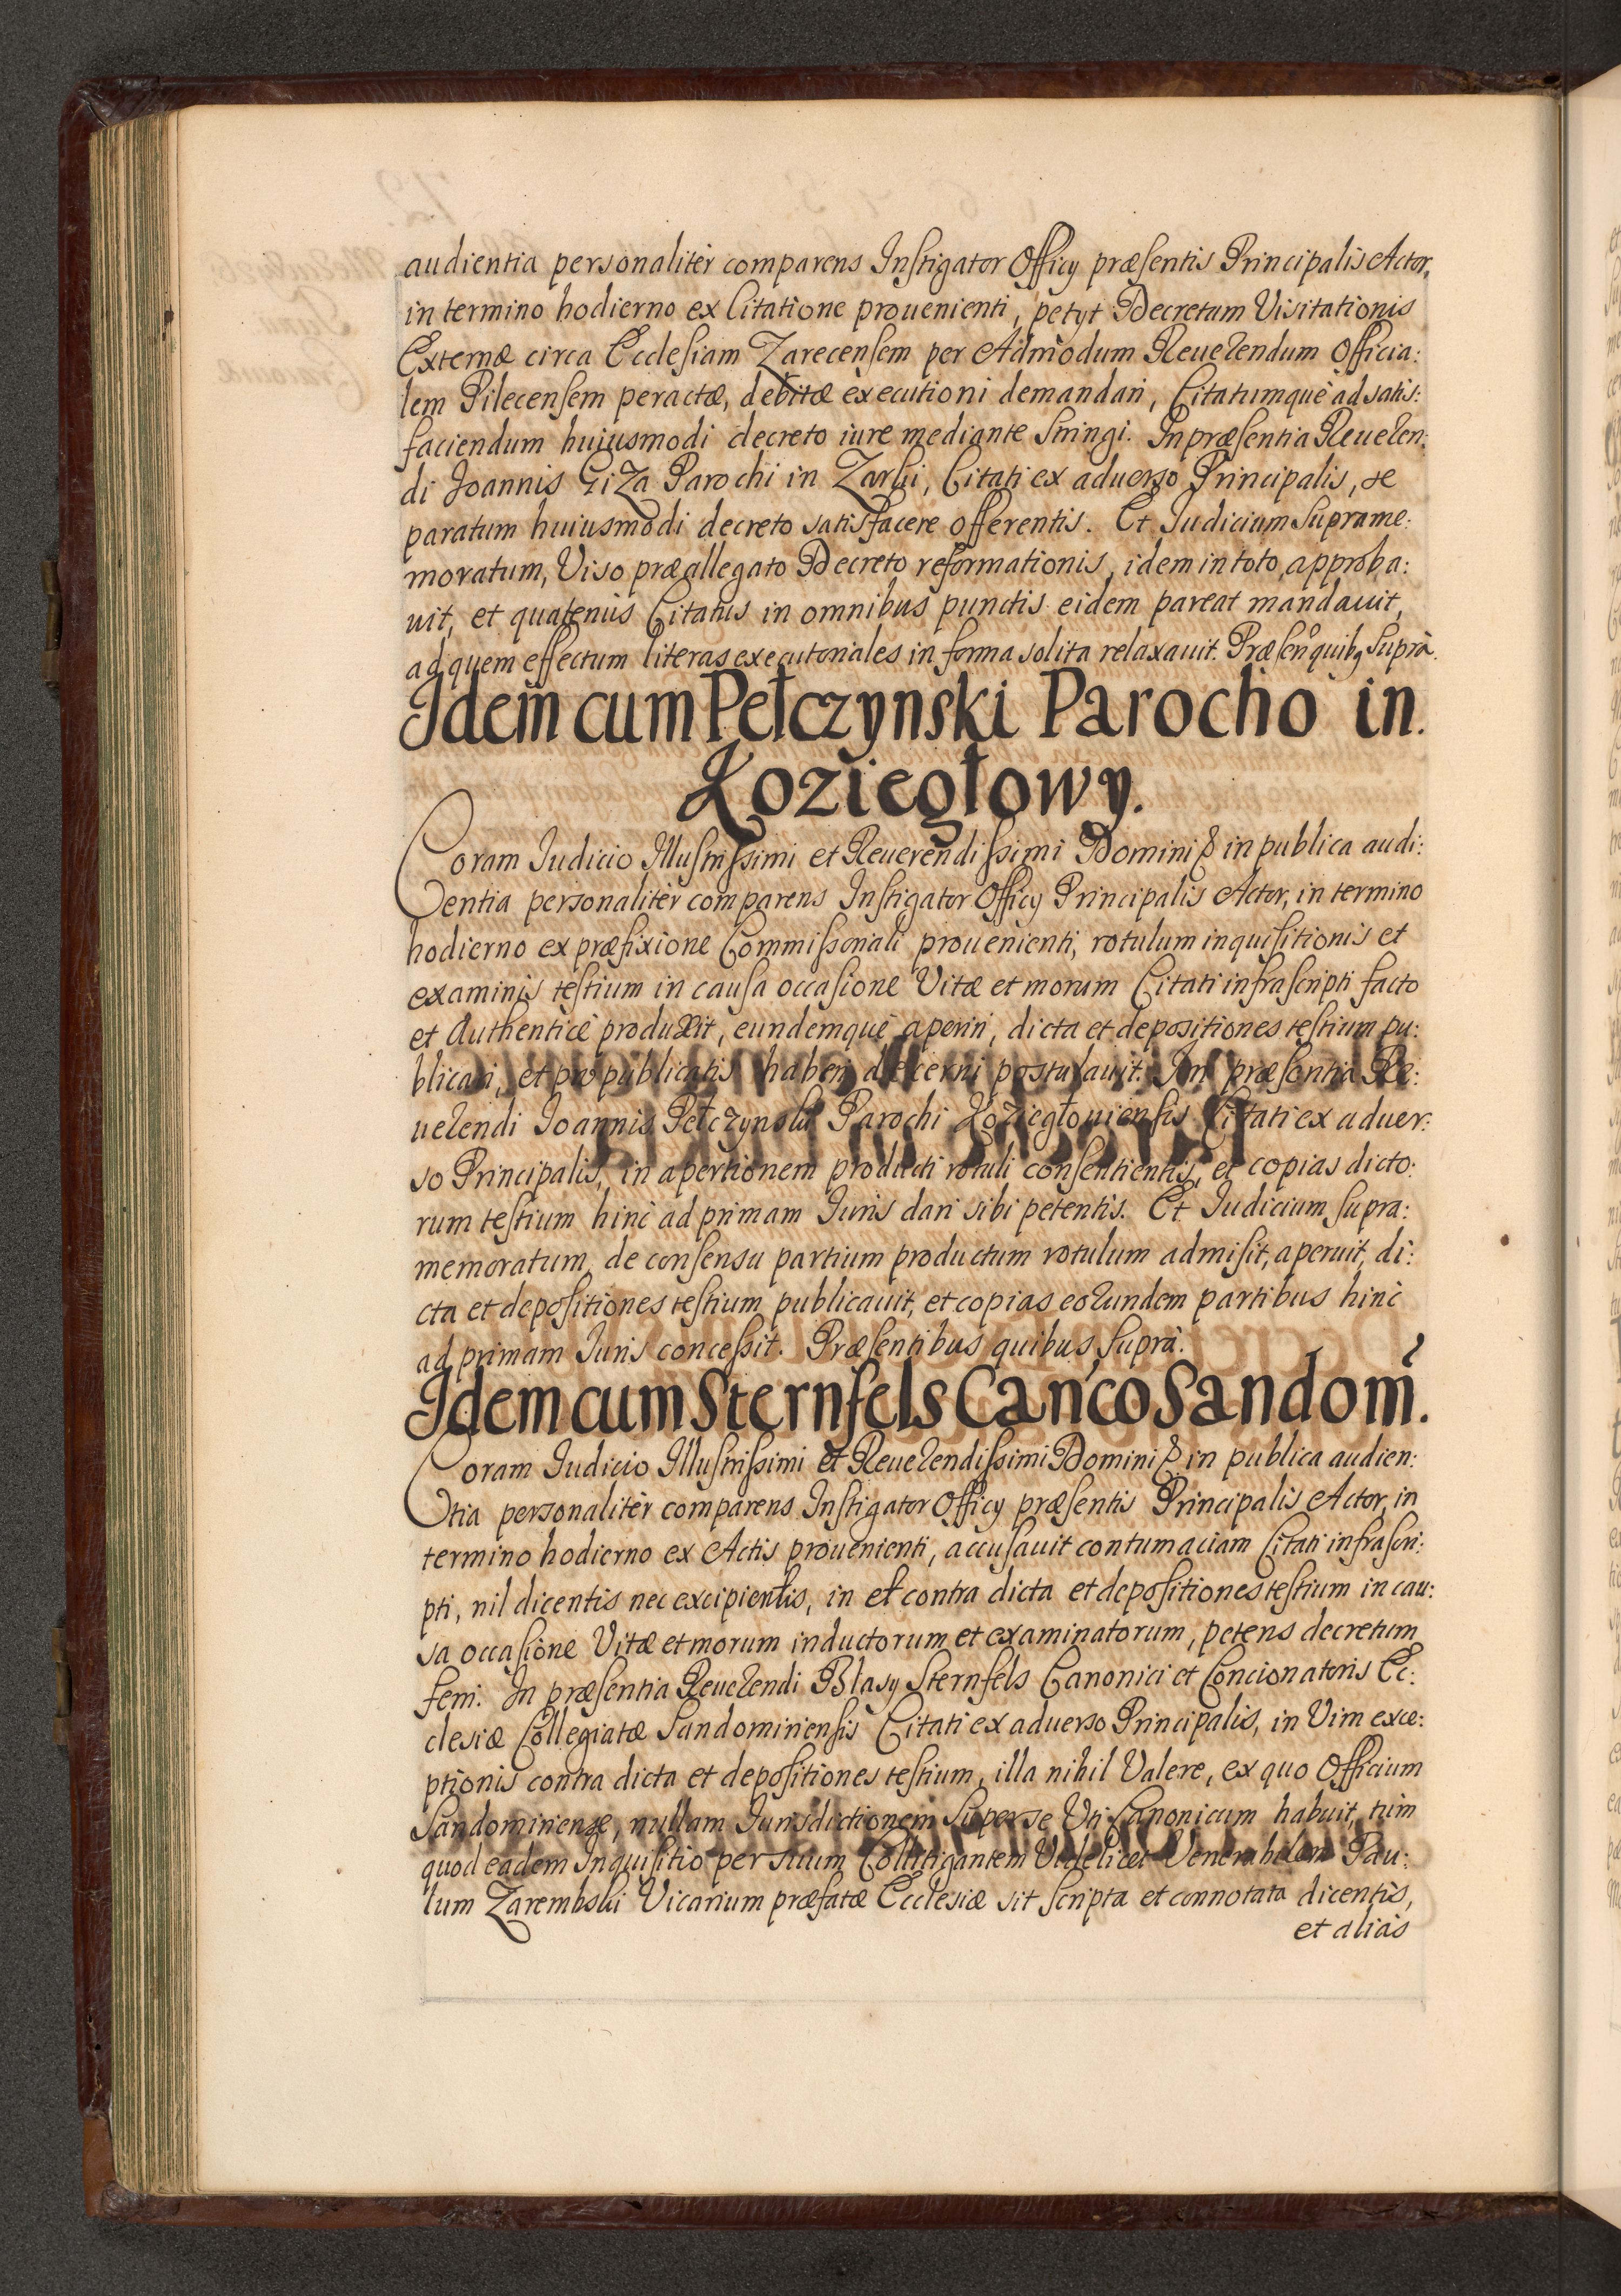 audientia personalitèr comparens Instigator Officÿ præsentis Principalis Actor,
in termino hodierno ex Citatione prouenienti, petÿt Decretum Visitationis
Externæ circa Ecclesiam Zarecensem per Admodum Reuerendum Officia:
lem Pilecensem peractæ, debitæ executioni demandari, Citatumquè ad satis:
faciendum huiusmodi decreto iure mediante stringi. In præsentia Reueren:
di Joannis Giza Parochi in Zarki, Citati ex aduerso Principalis, se
paratum huiusmodi decreto satisfacere offerentis. Et Judicium suprame:
moratum, Viso præallegato Decreto reformationis, idem in toto approba:
uit, et quatenùs Citatus in omnibus punctis eidem pareat mandauit,
ad quem effectum literas executoriales in forma solita relaxauit. Præsen quibꝫ suprà.
Idem cum Pełczynski Parocho in.
Koziegłowy.
Coram Judicio Illustrissimi et Reuerendissimi Domini & in publica audi:
entia personalitèr comparens Instigator Officÿ Principalis Actor, in termino
hodierno ex præfixione Commissoriali prouenienti, rotulum inquisitionis et
examinis testium in causa occasione Vitæ et morum Citati infrascripti facto
et Authenticè produxit, eundemquè aperiri, dicta et depositiones testium pu:
blicari, et pro publicatis haberi decerni postulauit. In præsentia Re:
uerendi Joannis Pełczynski Parochi Koziegłouiensis Citati ex aduer:
so Principalis, in apertionem producti rotuli consentientis, et copias dicto:
rum testium hinc ad primam Juris dari sibi petentis. Et Judicium supra:
memoratum, de consensu partium productum rotulum admisit, aperuit, di:
cta et depositiones testium publicauit, et copias eorundem partibus hinc
ad primam Juris concessit. Præsentibus quibus suprà.
Idem cum Sternfels Canco Sandom.
Coram Judicio Illustrissimi et Reuerendissimi Domini & in publica audien:
tia personalitèr comparens Instigator Officÿ præsentis Principalis Actor, in
termino hodierno ex Actis prouenienti, accusauit contumaciam Citati infrascri:
pti, nil dicentis nec excipientis, in et contra dicta et depositiones testium in cau:
sa occasione Vitæ et morum inductorum et examinatorum, petens decretum
ferri. In præsentia Reuerendi Blasÿ Sternfels Canonici et Concionatoris Ec:
clesiæ Collegiatæ Sandomiriensis Citati ex aduerso Principalis, in Vim exce:
ptionis contra dicta et depositiones testium, illa nihil Valere, ex quo Officium
Sandomiriense, nullam Jurisdictionem super se Uti Canonicum habuit, tùm
quod eadem Inquisitio per suum Collitigantem Videlicet Venerabilem Pau:
lum Zarembski Vicarium præfatæ Ecclesiæ sit scripta et connotata dicentis,
et aliàs